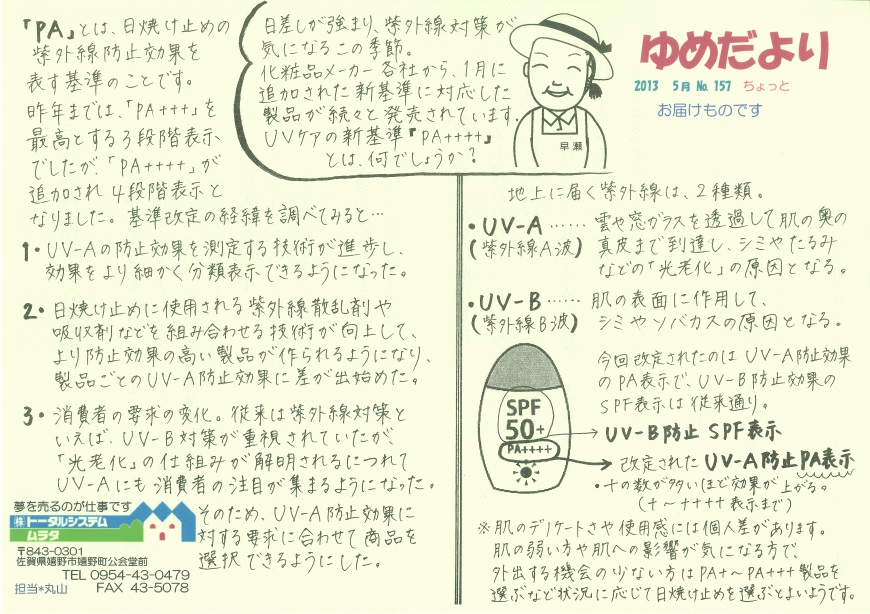 ゆめだより
2013 5月 No.157 ちょっと
お届けものです
日差しが強まり、紫外線対策が
気になるこの季節。
化粧品メーカー各社から、1月に
追加された新基準に対応した
製品が続々と発売されています。
UVケアの新基準『PA++++』
とは、何でしょうか?
早瀬
「PA」とは、日焼け止めの
紫外線防止効果を
表す基準のことです。
昨年までは、「PA+++」を
最高とする3段階表示
でしたが、「PA++++」が
追加され4段階表示と
なりました。基準改定の経緯を調べてみると…
1・UV-Aの防止効果を測定する技術が進歩し、
効果をより細かく分類表示できるようになった。
2・日焼け止めに使用される紫外線散乱剤や
吸収剤などを組み合わせる技術が向上して、
より防止効果の高い製品が作られるようになり、
製品ごとのUV-A防止効果に差が出始めた。
3・消費者の要求の変化。従来は紫外線対策と
いえば、UV-B対策が重視されていたが、
「光老化」の仕組みが解明されるにつれて
UV-Aにも消費者の注目が集まるようになった。
そのため、UV-A防止効果に
対する要求に合わせて商品を
選択できるようにした。
夢を売るのが仕事です
㈱トータルシステム
ムラタ
〒843-0301
佐賀県嬉野市嬉野町公会堂前
TEL 0954-43-0479
担当*丸山 FAX 43-5078
地上に届く紫外線は、2種類。
・UV-A……雲や窓ガラスを透過して肌の奥の
(紫外線A波) 真皮まで到達し、シミやたるみ
などの「光老化」の原因となる。
・UV-B……肌の表面に作用して、
(紫外線B波) シミやソバカスの原因となる。
今回改定されたのはUV-A防止効果
のPA表示で、UV-B防止効果の
SPF表示は従来通り。
SPF
50+
PA++++
→UV-B防止 SPF表示
→改定されたUV-A防止PA表示
・+の数が多いほど効果が上がる。
(+~++++表示まで)
※肌のデリケートさや使用感には個人差があります。
肌の弱い方や肌への影響が気になる方で、
外出する機会の少ない方はPA+~PA+++製品を
選ぶなど状況に応じて日焼け止めを選ぶとよいようです。